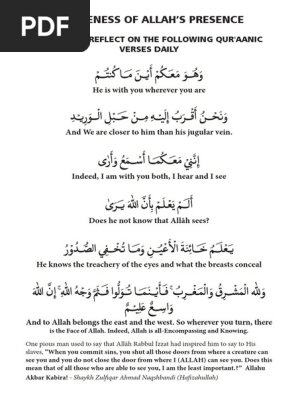 PDF
ENESS OF ALLAH'S PRESENCE
REFLECT ON THE FOLLOWING QUR'AANIC
VERSES DAILY
وَهُوَ مَعَكُمْ أَيْنَ مَا كُنتُمْ
He is with you wherever you are
وَنَحْنُ أَقْرَبُ إِلَيْهِ مِنْ حَبْلِ الْوَرِيدِ
And We are closer to him than his jugular vein.
إِنَّنِي مَعَكُمَا أَسْمَعُ وَأَرَى
Indeed, I am with you both, I hear and I see
أَلَمْ يَعْلَمْ بِأَنَّ اللَّهَ يَرَىٰ
Does he not know that Allāh sees?
يَعْلَمُ خَائِنَةَ الْأَعْيُنِ وَمَا تُخْفِي الصُّدُورُ
He knows the treachery of the eyes and what the breasts conceal
وَلِلَّهِ الْمَشْرِقُ وَالْمَغْرِبُ ۚ فَأَيْنَمَا تُوَلُّوا فَثَمَّ وَجْهُ اللَّهِ ۚ إِنَّ اللَّهَ
وَاسِعٌ عَلِيمٌ
And to Allah belongs the east and the west. So wherever you turn, there
is the Face of Allah. Indeed, Allah is all-Encompassing and Knowing.
One pious man used to say that Allāh Rabbul Izzat had inspired him to say to His
slaves, "When you commit sins, you shut all those doors from where a creature can
see you and you do not close the door from where I (ALLAH) can see you. Does this
mean that of all those who are able to see you, I am the least important.?" Allahu
Akbar Kabira! - Shaykh Zulfiqar Ahmad Naqshbandi (Hafizahullah)